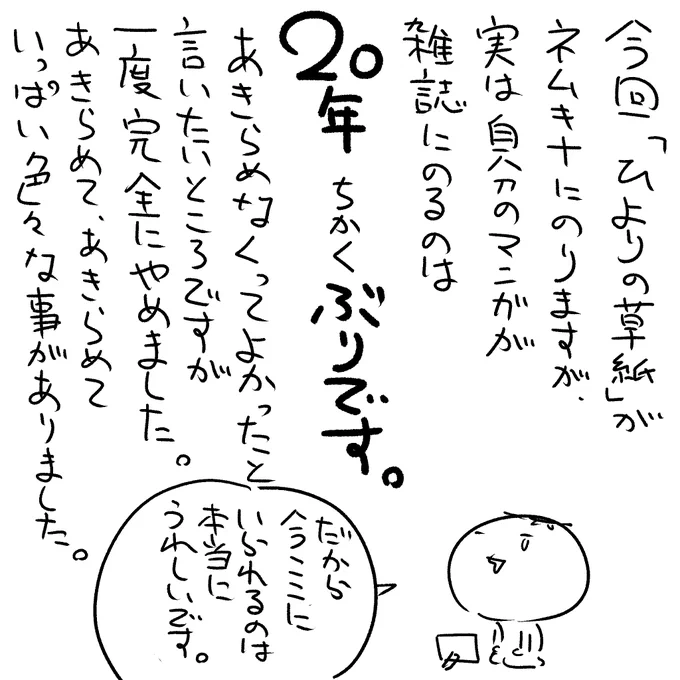 今回「ひよりの草紙」が
ネムキ+にのりますが、
実は自分のマンガが
雑誌にのるのは
20年ちかくぶりです。
あきらめなくってよかったと
言いたいところですが
一度完全にやめました。
あきらめて、あきらめて
いっぱい色々な事がありました。
だから
今ここに
いられるのは
本当に
うれしいです。